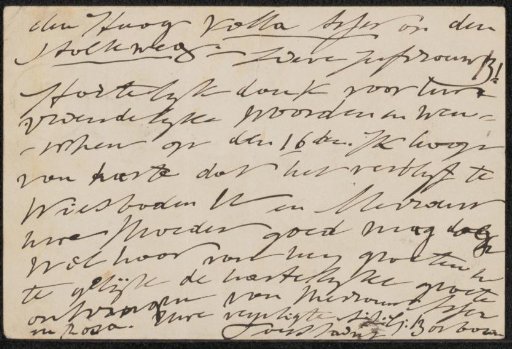 den Haag Villa Ifer on den
Stolkweg - Lieve Jufvrouw B!
Hartelijk dank voor Uwe
vriendelijke woorden en wen-
-schen op den 16den. Ik hoop
van harte dat het verblijf te
Wiesbaden U en Mevrouw
Uwe Moeder goed mag doen
Wil haar van mij groeten en
te gelijk de hartelijke groete
ontvangen van Mevrouw
en Rosa. Uwe
Toussaint Bosboom